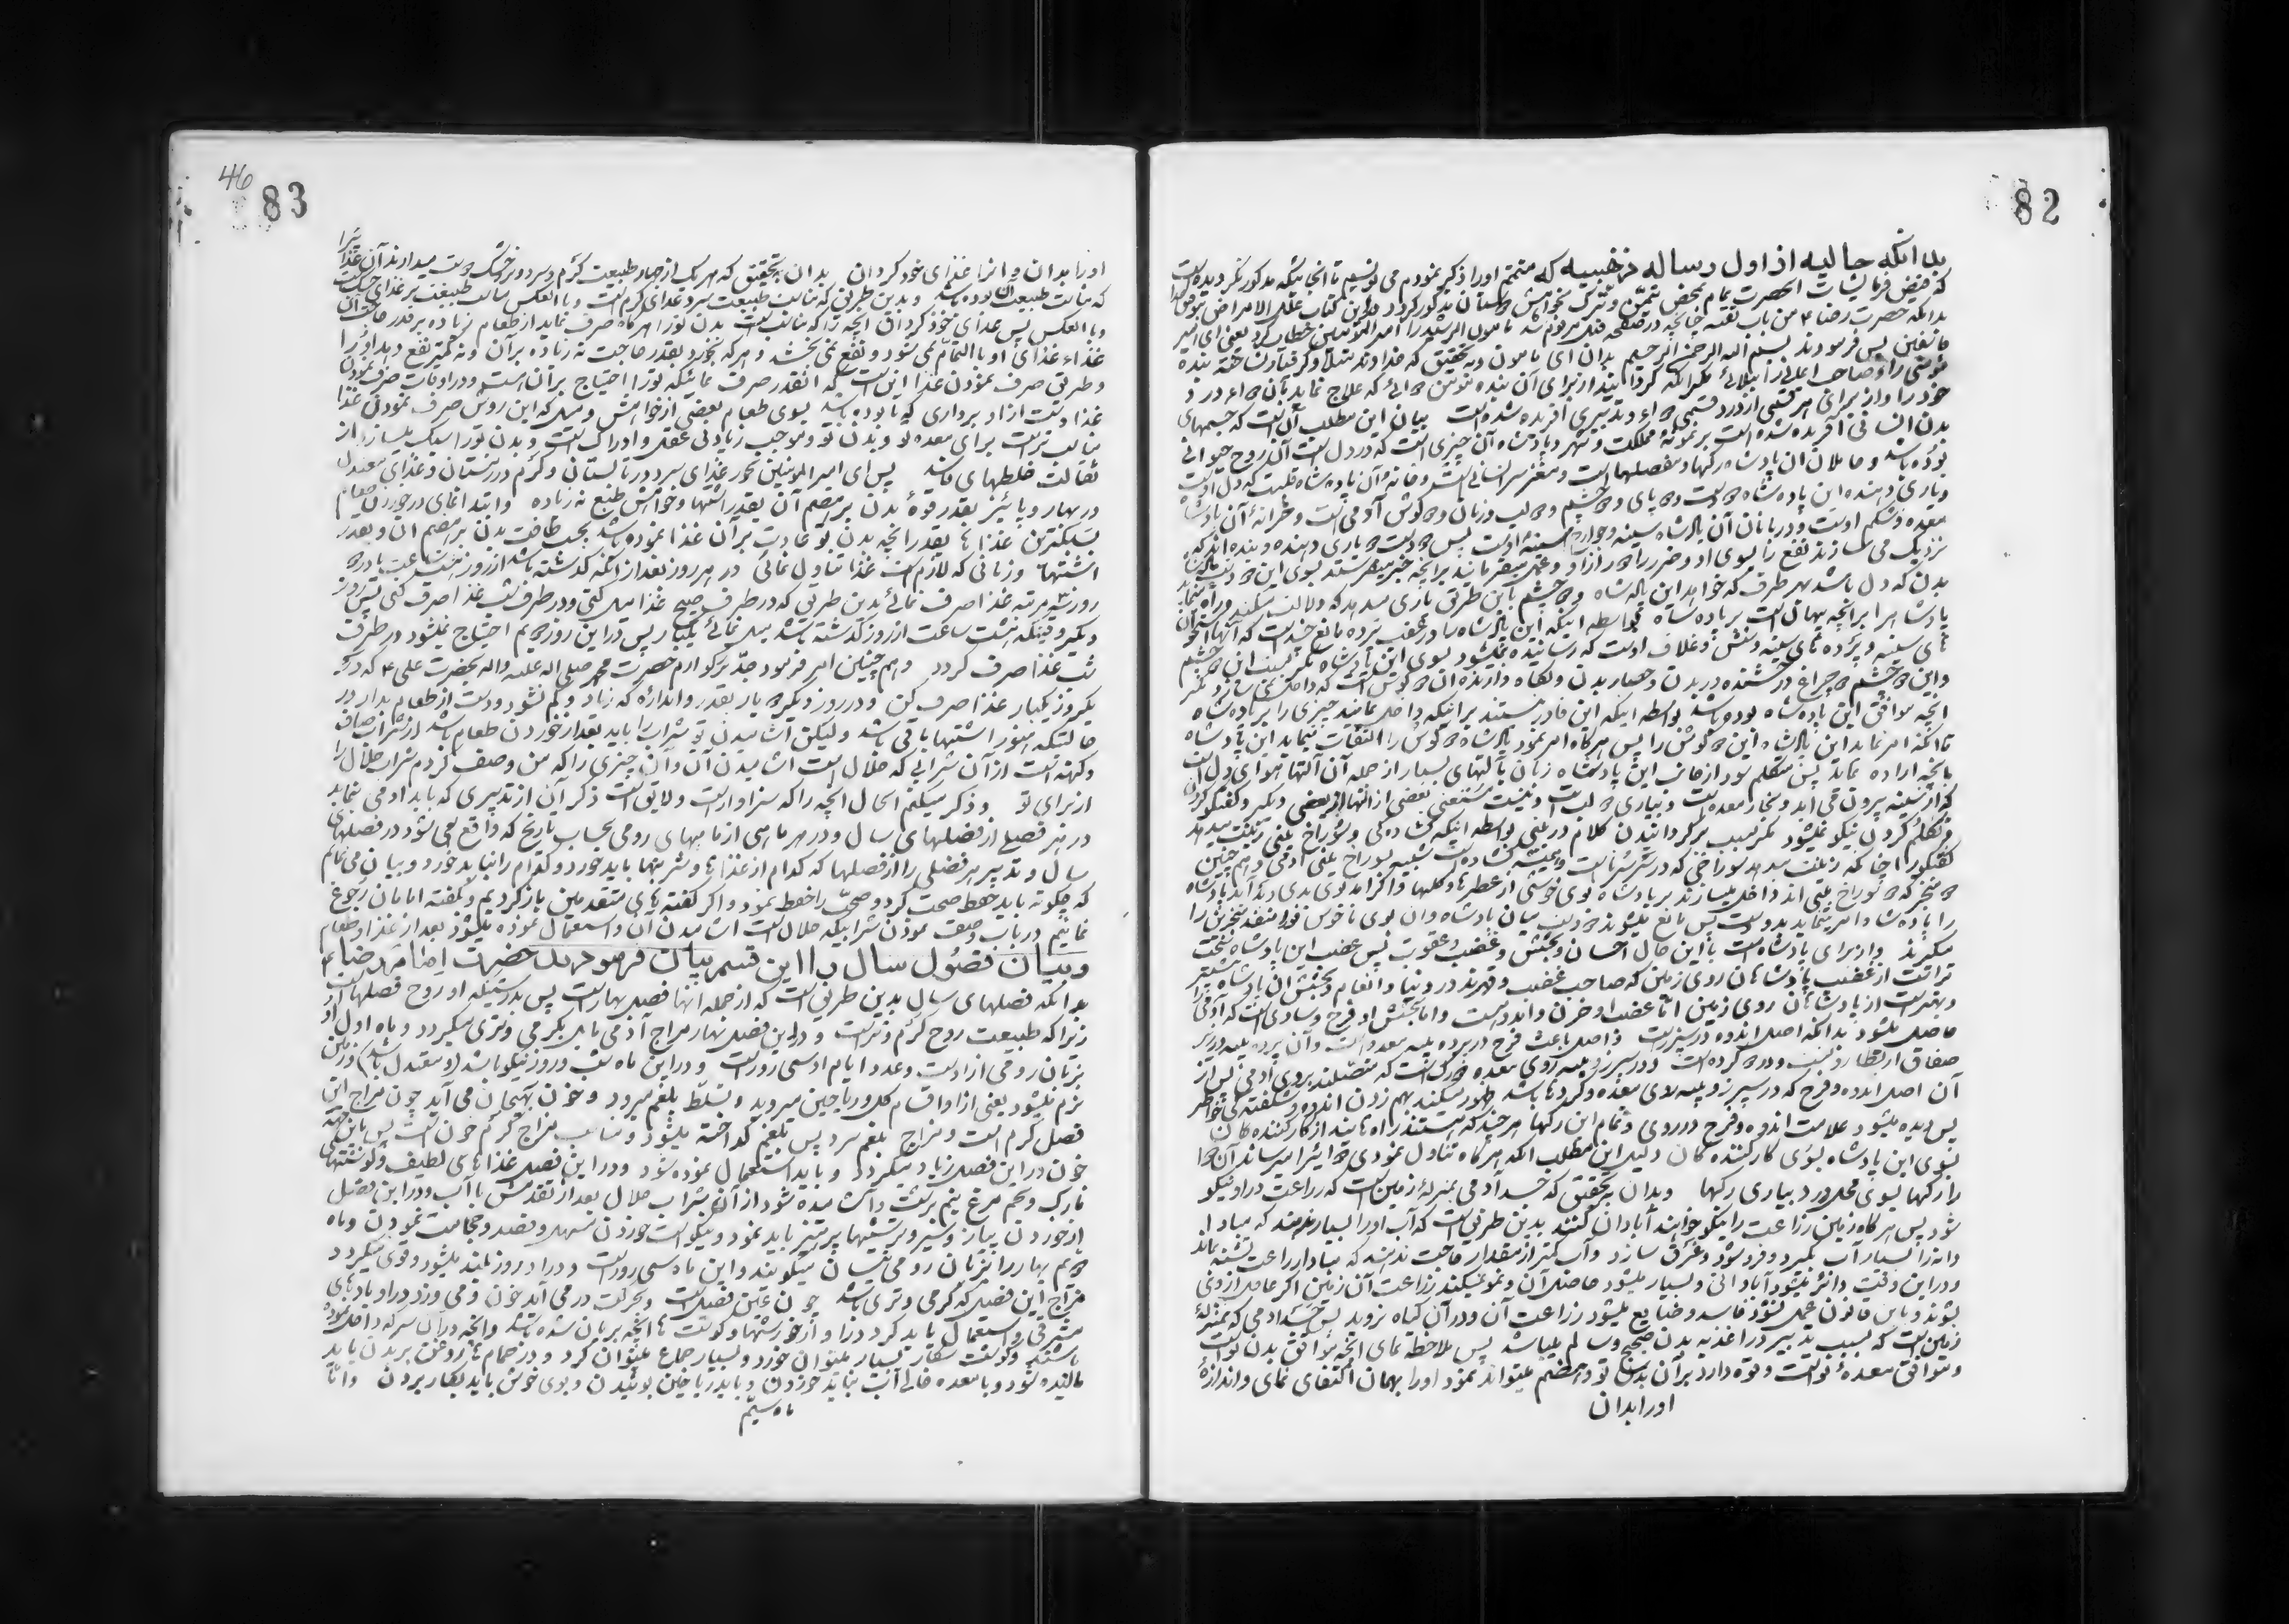 82
بدانکه حالیه از اول رساله ذهبیه که متمم اورا ذکر نمودم می نویسم تا انجائیکه مذکور نگردیده است
که فیض فرمایشات انحضرت تمام بمحض تیمّن و تبرّک بخواهش دوستان مذکور گردد در این کتاب علل الامراض
بدانکه حضرت رضا ع من باب تقیه چنانچه در صفحه قبل مرقوم شد مامون الرشید را امیر المؤمنین خطاب کرد یعنی ای امیر
پس فرمودند بسم الله الرحمن الرحیم بدان ای مامون بدرستی و تحقیق که خداوند مبتلا و گرفتار نساخته بنده
مؤمنی را و صاحب ایمانی را ببلائی مگر انکه گردانید از برای آن بنده مؤمن دوائی که علاج نماید بآن دواء درد
خود را و از برای هر قسمی از درد قسمی دواء و تدبیری افریده شده است بیان این مطلب آن است که جسمهای
بدن انسانی آفریده شده است بر نمونهٔ مملکت و شهر و پادشاه آن چیزی است که در دل است آن روح حیوانی
بوده باشد و عاملان ان پادشاه رگها و مفصلها است و مغز سر انسانی است و خانهٔ آن پادشاه قلبست که دل است
و یاری دهنده این پادشاه دو دست و دو پای و دو چشم و دو لب و زبان و دو گوش آدمی است و خزانهٔ آن پادشاه
معده و شکم اوست و دربانان آن پادشاه سینه و جوارح سینهٔ اوست پس دو دست دو یاری دهنده و بنده اند که
نزدیک می سازند نفع را بسوی او و ضرر را دور از او و عمل میفرمایند بر آنچه خبر میفرستد بسوی این دو دست
بدن که دل باشد بهر طرف که خواهد این پادشاه و دو چشم باین طریق یاری میدهد که دلالت میکند و راه مینماید
پادشاه را بر انچه پنهان است بر پادشاه بواسطه اینکه این پادشاه سا در عقب پرده مانع چند است که آنها استخوان
های سینه و پرده های سینه و تنش و غلاف اوست که رسانیده نمیشود بسوی این پادشاه مگر بسبب ان دو چشم
و این دو چشم دو چراغ درخشنده در بدن و حصار بدن و نگاه دارنده ان دو گوش است که داخل نمی سازد مگر
انچه موافق این پادشاه بوده باشد بواسطه اینکه این قادر نیستند بر اینکه داخل نمایند چیزی را بر پادشاه
تا انکه امر نماید این پادشاه این دو گوش را پس هر گاه امر نمود پادشاه دو گوش را التفات مینماید این پادشاه
بانچه اراده نماید پس متکلم شود از جانب این پادشاه زبان بآلتهای بسیار از جمله آن آلتها هوای دل است
که از سینه بیرون می اید و بخار معده است و بیاری دو لب است و نیست مستغنی بعضی از آنها از بعضی دیگر و گفتگو کردن
و تکلم کردن نیکو نمیشود مگر بسبب برگردانیدن کلام در بینی بواسطه اینکه کشاده گی و سوراخ بینی زینت میدهد
گفتگو را چنانکه زینت میدهد سوراخی که در سر سرنا است و همیشه کشاده است شبیه سوراخ بینی ادمی و هم چنین
دو منخر که دو سوراخ بینی اند داخل میسازند بر پادشاه بوی خوشی از عطرها و گلها و اگر امد بوی بدی
را پادشاه امر مینماید بدو دست پس مانع میشوند دو دست میان پادشاه و ان بوی ناخوش فورا منفذ منخرین را
میگیرند و از برای پادشاه است با این حال احسان و بخشش و غضب و عقوبت پس غضب این پادشاه سخت
تر است از غضب پادشاهان روی زمین که صاحب غضب و قهرند در دنیا و انعام و بخشش ان پادشاه
و بهتر است از پادشاهان روی زمین امّا غضب او حزن و اندوه است و امّا بخشش او فرح و شادی است که آدمی
حاصل میشود بدانکه اصل اندوه در سپرز است و اصل باعث فرح در پرده پیه معده است و آن پرده پیه
آن اصل اندوه و فرح که در سپرز و پیه روی معده و گرده ها باشد ظهور میکند بهم زدن اندوه و شکفته گی خواطر
پس دیده میشود علامت اندوه و فرح در روی و تمام این رگها هر چند که هستند راه ها یند از کار کننده کان
بسوی این پادشاه بسوی کار کننده کان دلیل این مطلب انکه هر گاه تناول نمودی دوائیرا میرساند آن دوا
را رگها بسوی محل درد بیاری رگها و بدان بتحقیق که جسد آدمی بمنزلهٔ زمین است که زراعت در او نیکو
شود پس هر گاه زمین زراعت را نیکو خواهند آبادان کنند بدین طریق است که آب اورا بسیار ندهند که مبادا
دانه را بسیار آب بگیرد و فرو شود و غرق سازد و آب کمتر از مقدار حاجت ندهند که مبادا زراعت تشنه بماند
و در این وقت دائم میشود آبادانی و بسیار میشود حاصل آن و نمو میکند زراعت آن زمین اگر غافل از وی
بشوند و باین قانون عمل نشود فاسد و ضایع میشود زراعت آن و در آن گیاه نروید پس جسد آدمی که بمنزلهٔ
زمین است که بسبب تدبیر در اغذیه بدن صحیح و سالم میباشد پس ملاحظه نمای انچه موافق بدن توست
و موافق معدهٔ تو است و قوّه دارد بر آن بدن تو و هضم میتواند نمود اورا بهمان اکتفای نمای و اندازهٔ
اورا بدان
46
83
اورا بدان و انرا غذای خود گردان بدان بتحقیق که هر یک از چهار طبیعت گرم و سرد و تر و خشک دوست میدارند آن غذا را
که مناسب طبیعت ان بوده باشد و بدین طریق که مناسب طبیعت سرد غذای گرم است و با العکس مناسب طبیعت تر غذای خشک است
و با العکس پس غذای خود گردان انچه را که مناسب است بدن تورا هر گاه صرف نماید از طعام زیاده بر قدر حاجت آن
غذاء غذای او با التمام نمی شود و نفع نمی بخشد و هر که بخورد بقدر حاجت نه زیاده بر آن و نه کمتر نفع دهد اورا
و طریق صرف نمودن غذا این است که انقدر صرف نمائیکه تورا احتیاج بر آن است و در اوقات صرف نمودن
غذا دست از او برداری که تا بوده باشد بسوی طعام بعضی از خواهش و میل که این روش صرف نمودن غذا
مناسب تر است برای معده تو و بدن تو و موجب زیادتی عقل و ادراک است و بدن تورا سبک میسازد از
ثقالت خلطهای فاسد پس ای امیر المؤمنین بخور غذای سرد در تابستان و گرم در زمستان و غذای معتدل
در بهار و پائیز بقدر قوهٔ بدن بر هضم آن بقدر اشتها و خواهش طبع نه زیاده و ابتدا نمای در خوردن طعام
بسبکترین غذاها بقدر انچه بدن تو عادت بر آن غذا نموده باشد بحسب طاقت بدن بر هضم ان و بقدر
اشتهات و زمانی که لازم است غذا تناول نمائی در هر روز بعد از انکه گذشته باشد از روز هشت ساعت
روز سه مرتبه غذا صرف نمائی بدین طریق که در طرف صبح غذا میل کنی و در طرف شب غذا صرف کنی پس روز
دیگر وقتیکه هشت ساعت از روز گذشته باشد میل نمائی یکبار پس در این روز دویم احتیاج نمیشود در طرف
شب غذا صرف گردد و هم چنین امر فرمود جدّ بزرگوارم حضرت محمد صلی الله علیه واله بحضرت علی ع که در
یکروز یکبار غذا صرف کن و در روز دیگر دو بار بقدر و اندازهٔ که زیاد و کم نشود و دست از طعام بدار در
حالتیکه هنوز اشتها باقی باشد و لیکن آشامیدن تو شراب را باید بعد از خوردن طعام باشد از شراب صاف
و کهنه است از آن شرابی که حلال است اشامیدن آن و آن چیزی را که من وصف کردم شراب حلال را
از برای تو و ذکر میکنم الحال انچه را که سزاوار است و لایق است ذکر آن از تدبیری که باید ادمی بنماید
در هر فصلی از فصلهای سال و در هر ماهی از ماههای رومی بحساب تاریخ که واقع می شود در فصلهای
سال و تدبیر هر فصلی را از فصلها که کدام از غذاها و شربتها باید خورد و کدام را نباید خورد و بیان می نمایم
که چگونه باید حفظ صحت کرد و صحّت را حفظ نمود و اگر گفته های متقدمین باز گردیم و بگفته امامان رجوع
نمائیم در باب وصف نمودن شرابیکه حلال است اشامیدن آن و استعمال نموده میشود بعد از غذا و طعام
و بیان فصول سال را این قسم بیان فرموده ند حضرت امام رضا ع
بدانکه فصلهای سال بدین طریق است که از جمله انها فصل بهار است پس بدرستیکه او روح فصلها است
زیرا که طبیعت روح گرم و تر است و در این فصل بهار مزاج آدمی مایل بگرمی و تری میگردد و ماه اول او
بزبان رومی اذار است و عدد ایام او سی روز است و در این ماه شب و روز نیکو باشد (و معتدل باشد) و زمین
نرم میشود یعنی از او اقسام گل و ریاحین میروید و تسلط بلغم میرود و خون بهیجان می آید چون مزاج این
فصل گرم است و مزاج بلغم سرد پس بلغم گداخته میشود و مناسب مزاج گرم خون است پس باین جهة
خون در این فصل زیاد میگردد و باید استعمال نموده شود و در این فصل غذاهای لطیف و گوشتهای
نازک و تخم مرغ نیم برشت و آشامیده شود از آن شراب حلال بعد از تقدمش با آب و در این فصل
از خوردن پیاز و سیر و ترشیها پرهیز باید نمود و نیکو است خوردن مسهل و فصد و حجامت نمودن و ماه
دویم بهار را بزبان رومی نیسان میگویند و این ماه سی روز است و در او روز بلند میشود و قوی میگردد
مزاج این فصل که گرمی و تری باشد چون عین فصل است و بحرکت در می آید خون و می وزد در او بادهای
مشرقی و استعمال باید کرد در او از خورشتها و گوشت ها انچه بریان شده باشد و انچه در آن سرکه داخل نموده
باشند و گوشت شکار بسیار میتوان خورد و بسیار جماع میتوان کرد و در حمام ها روغن بر بدن باید
مالیده شود و با معده خالی آب نباید خوردن و باید ریاحین بوئیدن و بوی خوش باید بکار بردن و امّا
ماه سیّم